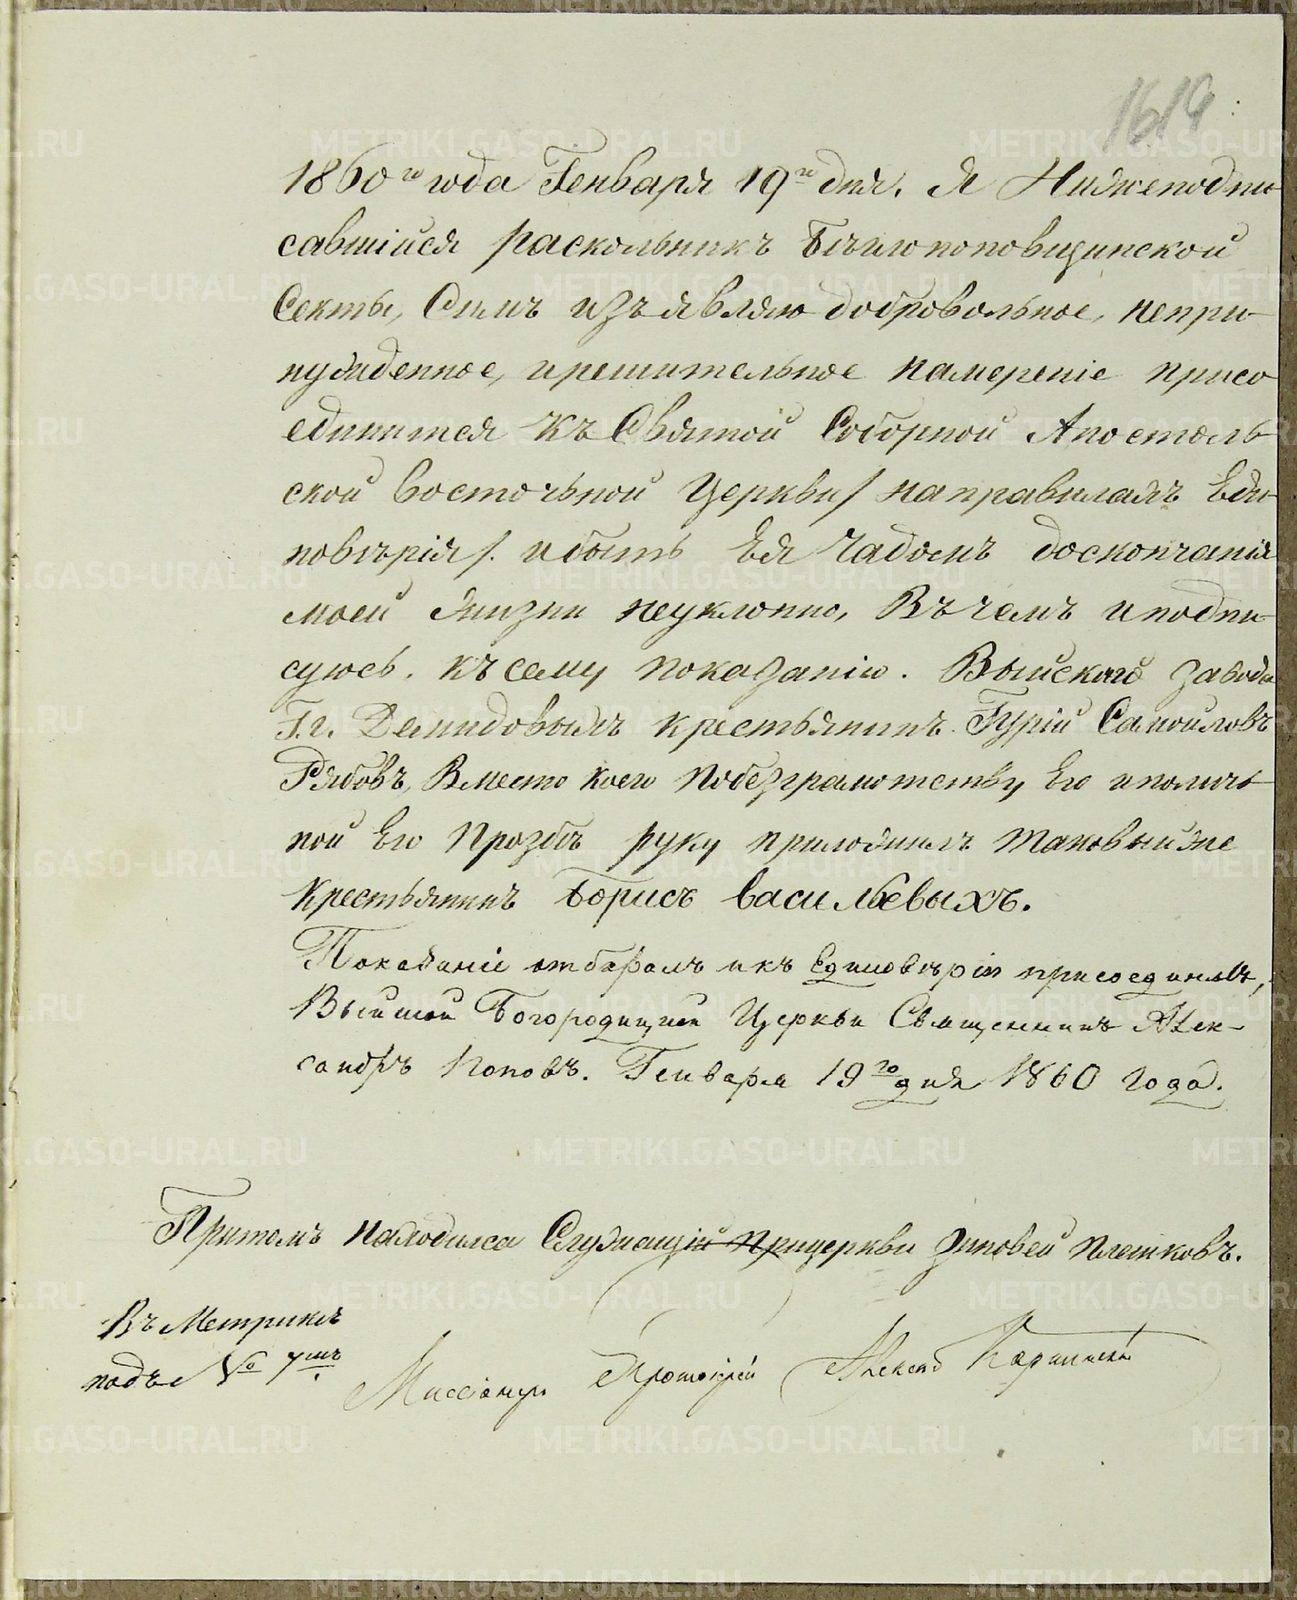 1619
1860го года Генваря 19го дня. Я Нижеподпи
савшійся раскольникъ Бѣглопоповщинской
Секты, Симъ изъявляю добровольное, непри-
нужденное, ирешительное намереніе присо
единится къ Святой Соборной Апостоль-
ской восточьной Церкви/ направилахъ Еди-
новѣрія/. ибыть Ея Чадомъ доскончанія
моей жизни неуклонно, Въчемъ иподпи-
суюсь. къ сему показанію. Выйскаго завода
Г.г. Демидовыхъ крестьянинъ Гурій Самойловъ
Рябовъ, Вместо коего побезграмотству Его иполичь-
ной Его Прозбѣ руку приложилъ таковыйже
Крестьянинъ Борисъ васильевыхъ.
Показаніе отбиралъ икъ Единовѣрію присоединилъ,
Выйской Богородицкой Церкви Священникъ Алек-
сандръ Поповъ. Генваря 19го дня 1860 года.
Притомъ находился Служащій Прицеркви Зиновей Плешковъ.
Въ Метрикѣ
подъ № 7мъ
Миссіонеръ Протоіерей